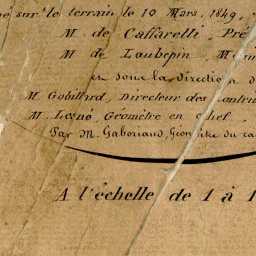 é sur le terrain le 10 Mars, 1849,
M. de Caffarelli, Pré
M. de Laubepin, M
en sous la direction d
M. Gobillard, Directeur des Contri
M. Lesnó Géomètre en chef,
Par M. Gaboriaud, Géomètre du ca
A l'échelle de 1 à 1